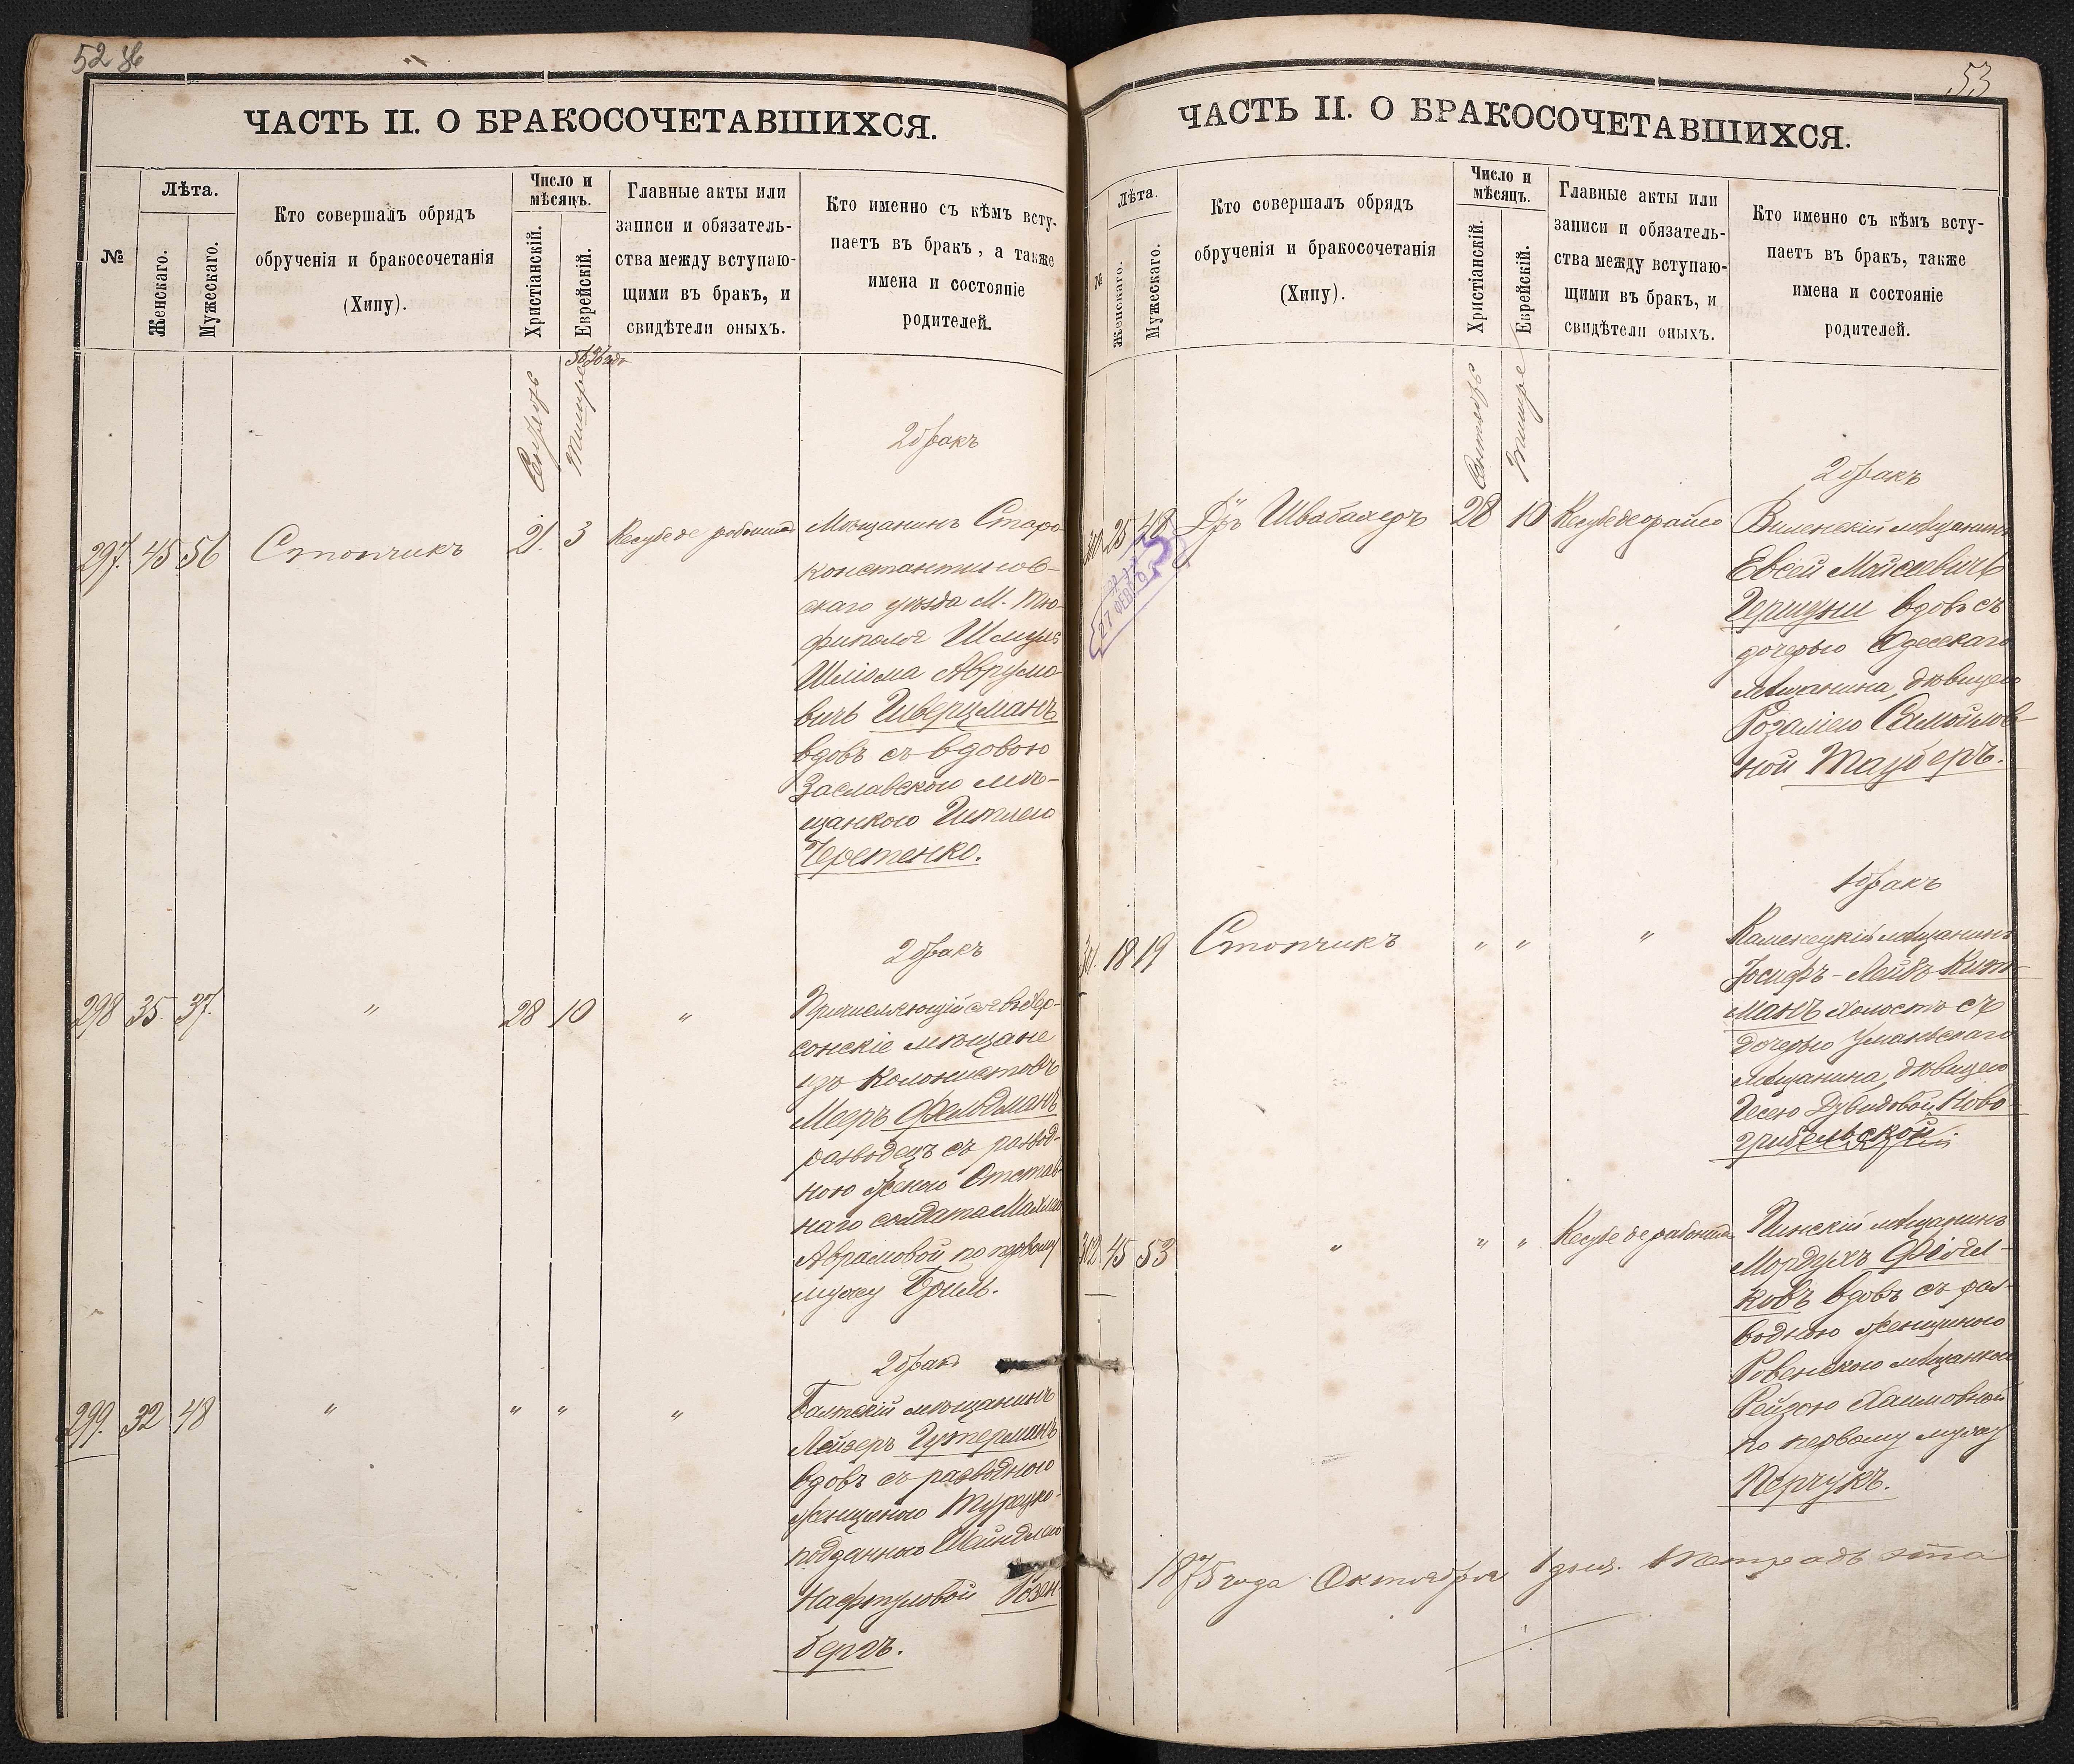 52 об
ЧАСТЬ II. О БРАКОСОЧЕТАВШИХСЯ.
№
Лѣта.
Женскаго.
Мужескаго.
Кто совершалъ обрядъ
обрученія и бракосочетанія
(Хипу).
Число и
мѣсяцъ.
Христіанскій.
Еврейскій.
Главные акты или
записи и обязатель-
ства между вступаю-
щими въ бракъ, и
свидѣтели оныхъ.
Кто именно съ кѣмъ всту-
паетъ въ бракъ, а также
имена и состояніе
родителей.
Сентябрь
Тишре
5636 года
2 бракъ
297. 45 56 Стопчикъ 21. 3
Мѣщанинъ Старо-
константинов-
скаго уѣзда М.
Шмуль
Шлiома Аврумо-
вичъ Гиверцманъ
вдовъ съ вдовою
Заславскою мѣ-
щанкою Гитлею
Черетенко.
2 бракъ
298 35. 37. " 28 10 "
Причисляющійся въ Хер-
сонскіе мѣщане
изъ колонистовъ
Мееръ Фельдманъ
разводецъ съ развод-
ною женою Отстав-
наго солдата
Абрамовой по первому
мужу Бриль.
2 бракъ
299. 32 48 " " " "
Балтскій мѣщанинъ
Лейзеръ Гутерманъ
вдовъ съ разводною
женщиною Турецко-
подданною Шейндлею
Нафтуловой Розен
бергъ.
53
ЧАСТЬ II. О БРАКОСОЧЕТАВШИХСЯ.
№
Лѣта.
Женскаго.
Мужескаго.
Кто совершалъ обрядъ
обрученія и бракосочетанія
(Хипу).
Число и
мѣсяцъ.
Христіанскій.
Еврейскій.
Главные акты или
записи и обязатель-
ства между вступаю-
щими въ бракъ, и
свидѣтели оныхъ.
Кто именно съ кѣмъ всту-
паетъ въ бракъ, также
имена и состояніе
родителей.
Сентябрь
Тишре
2 бракъ
300 25 48 Д-ръ Швабахеръ 28 10
27 ФЕВ
Виленскій мѣщанинъ
Евсей Мойсеевичъ
вдовъ съ
дочерью Одесскаго
мѣщанина, дѣвицею
Розаліею Самойлов-
ной Тауберъ.
1 бракъ
301. 18 19 Стопчикъ " " "
Каменецкій мѣщанинъ
Іосифъ-Лейбъ Кит-
манъ холостъ съ
дочерью Уманьскаго
мѣщанина, дѣвицею
Песею Дувидовой Ново-
грибельской.
302 45 53 " " "
Пинскій мѣщанинъ
Мордухъ Фидел-
ковъ вдовъ съ раз-
водною женщиною
Ровенскою мѣщанкою
Рейзею Хаимовной
по первому мужу
Перчукъ.
1875 года Октября 1 дня. Тетрадь эта